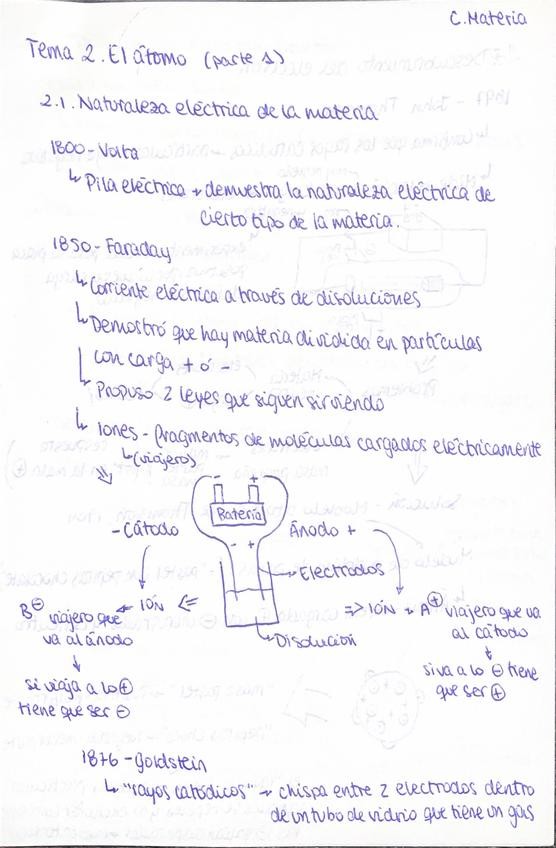 C. Materia
Tema 2. El átomo (parte 1)
2.1. Naturaleza eléctrica de la materia
1800 - Volta
↳ Pila eléctrica → demuestra la naturaleza eléctrica de
cierto tipo de la materia.
1850 - Faraday
↳ Corriente eléctrica a través de disoluciones
↳ Demostró que hay materia dividida en partículas
con carga + ó -
↳ Propuso 2 leyes que siguen sirviendo
↳ Iones - fragmentos de moléculas cargados eléctricamente
↳ (viajeros)
- +
Batería
- Cátodo
Ánodo +
- +
Electrodos
B⊖ viajero que ← IÓN ⇐
va al ánodo
⇒ IÓN → A⊕ viajero que va
al cátodo
Disolución
si viaja a lo ⊕
tiene que ser ⊖
si va a lo ⊖ tiene
que ser ⊕
1876 - Goldstein
↳ "rayos catódicos" → chispa entre 2 electrodos dentro
de un tubo de vidrio que tiene un gas